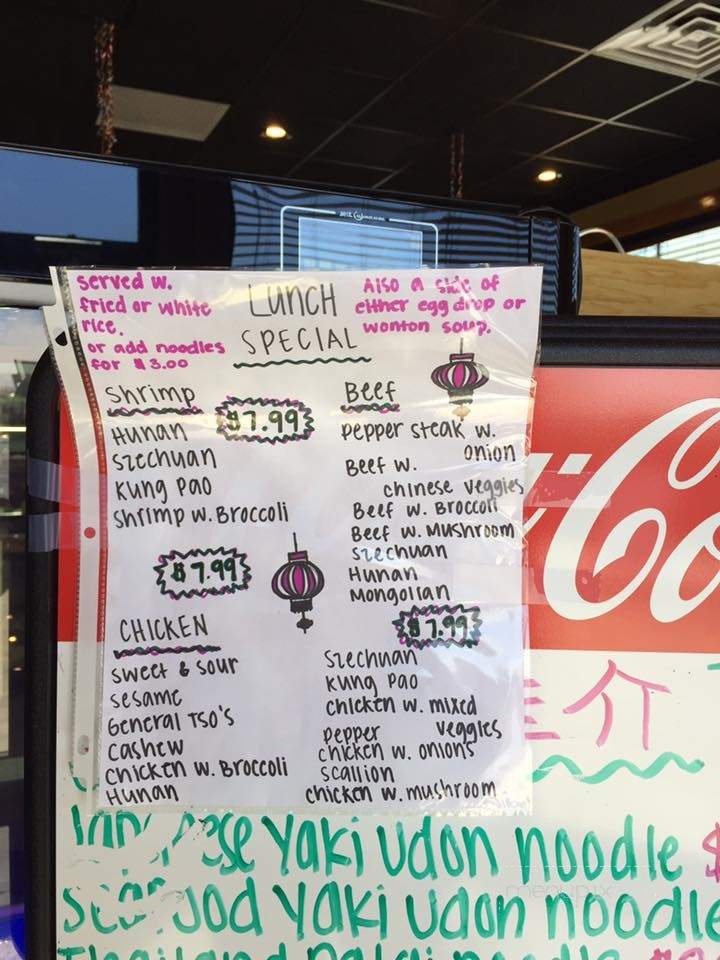 served w.
fried or white
rice.
or add noodles
for $3.00
LUNCH
SPECIAL
Also a side of
either egg drop or
wonton soup.
Shrimp
$7.99
Hunan
Szechuan
Kung Pao
Shrimp w. Broccoli
Beef
Pepper steak w.
onion
Beef w.
chinese veggies
Beef w. Broccoli
Beef w. Mushroom
Szechuan
Hunan
Mongolian
$7.99
CHICKEN
sweet & sour
sesame
General TSO's
cashew
chicken w. Broccoli
Hunan
$7.99
Szechuan
Kung Pao
chicken w. mixed
veggies
pepper
chicken w. onions
scallion
chicken w. mushroom
Co
介
Yaki udon noodle $
Yaki udon noodle
Thailand noodle
menupix